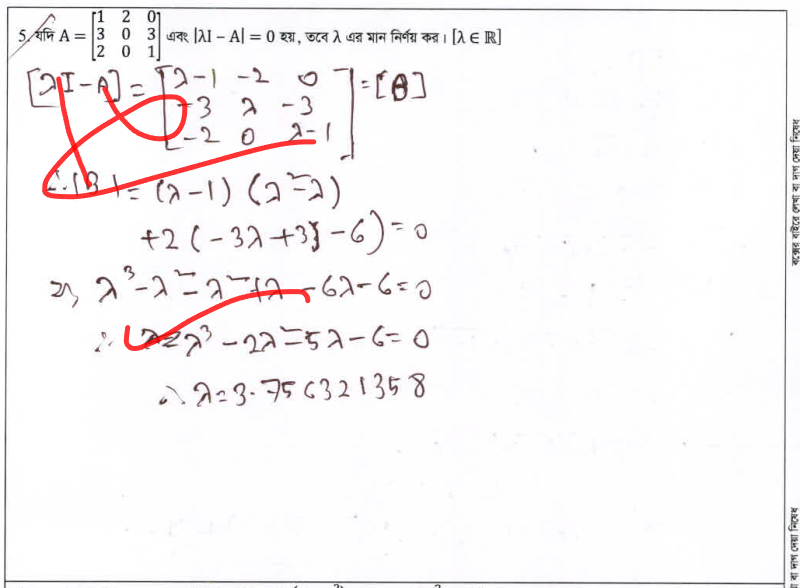 5. যদি A = [1 2 0; 3 0 3; 2 0 1] এবং |λI − A| = 0 হয়, তবে λ এর মান নির্ণয় কর। [λ ∈ ℝ]
[λI − A] = [λ−1 −2 0; −3 λ −3; −2 0 λ−1] = [B]
∴ |B| = (λ−1) (λ²−λ)
+2 (−3λ+3 −6) = 0
বা, λ³ − λ² − λ² + λ − 6λ − 6 = 0
∴ λ³ − 2λ² − 5λ − 6 = 0
∴ λ = 3.756321358
বক্সের বাইরে লেখা বা দাগ দেয়া নিষেধ
বা দাগ দেয়া নিষেধ